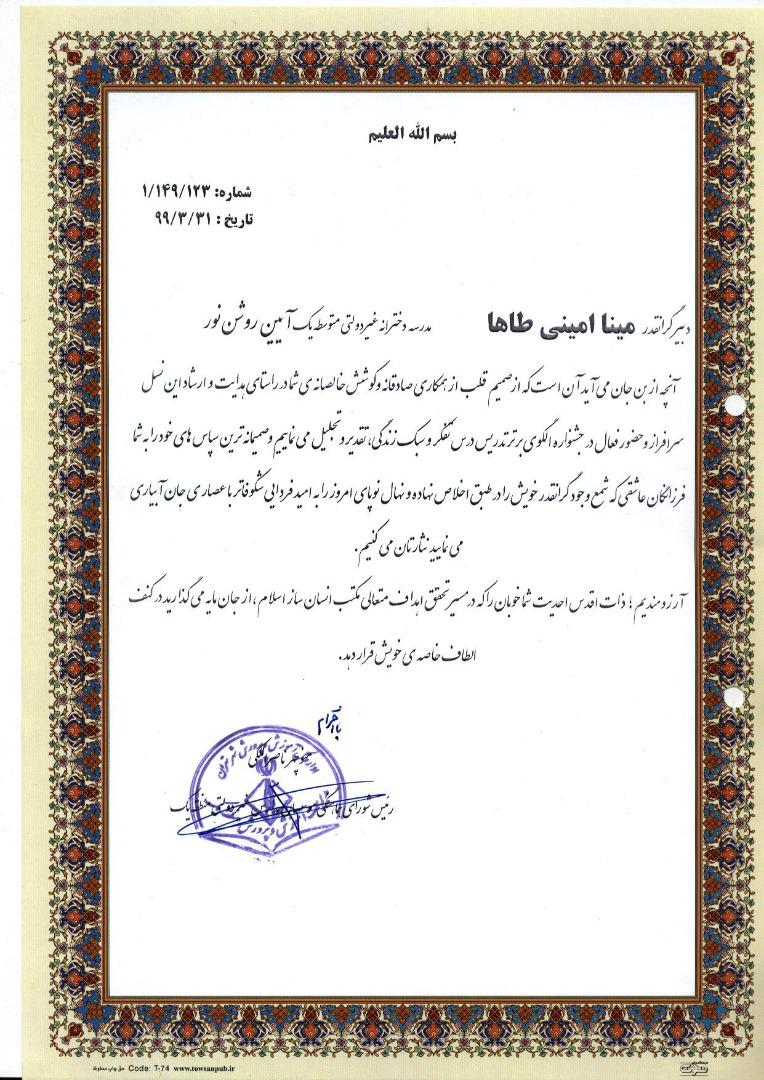 بسم الله العلیم
شماره: ۱/۱۴۹/۱۲۳
تاریخ : ۹۹/۳/۳۱
دبیر گرانقدر مینا امینی طاها مدرسه دخترانه غیردولتی متوسطه یک آیین روشن نور
آنچه از بن جان می آید آن است که از صمیم قلب از همکاری صادقانه و کوشش خالصانه ی شما در راستای هدایت و ارشاد این نسل
سرافراز و حضور فعال در جشنواره الگوی برتر تدریس درس تفکر و سبک زندگی، تقدیر و تجلیل می نماییم و صمیمانه ترین سپاس های خود را به شما
فرزانگان عاشقی که شمع وجود گرانقدر خویش را در طبق اخلاص نهاده و نهال نوپای امروز را به امید فردایی شکوفاتر با عصاری جان آبیاری
می نمایید نثارتان می کنیم.
آرزومندیم؛ ذات اقدس احدیت شما خوبان را که در مسیر تحقق اهداف متعالی مکتب انسان ساز اسلام، از جان مایه می گذارید در کنف
الطاف خاصه ی خویش قرار دهد.
با احترام
رئیس شورای هماهنگی
حق چاپ محفوظ Code: T-74 www.towsanpub.ir